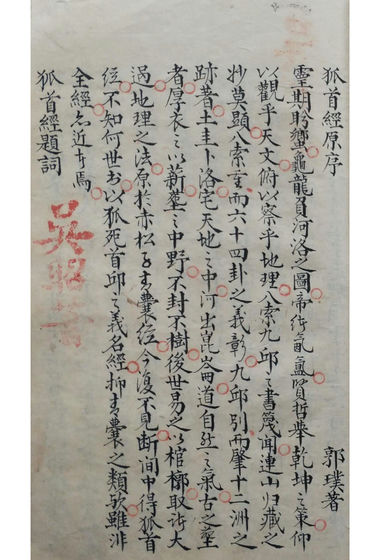 狐首經原序 郭璞著
靈期肹蠁龜龍負河洛之圖帝衍氤氳賢哲舉乾坤之策仰
以觀乎天文俯以察乎地理八索九邱之書篾聞連山归藏之
妙莫顯八索重而六十四卦之義彰九邱別而肇十二洲之
跡著土圭卜洛宅天地之中河出崑崙道自然之氣古之塟
者厚衣之以薪塟之中野不封不樹後世易之以棺槨取诸大
過地理之法原於赤松子青囊經今復不見断间中得狐首
经不知何世书以狐死首邱之義名經抑青囊之類欤雖非
全經亦近古焉
狐首經題詞